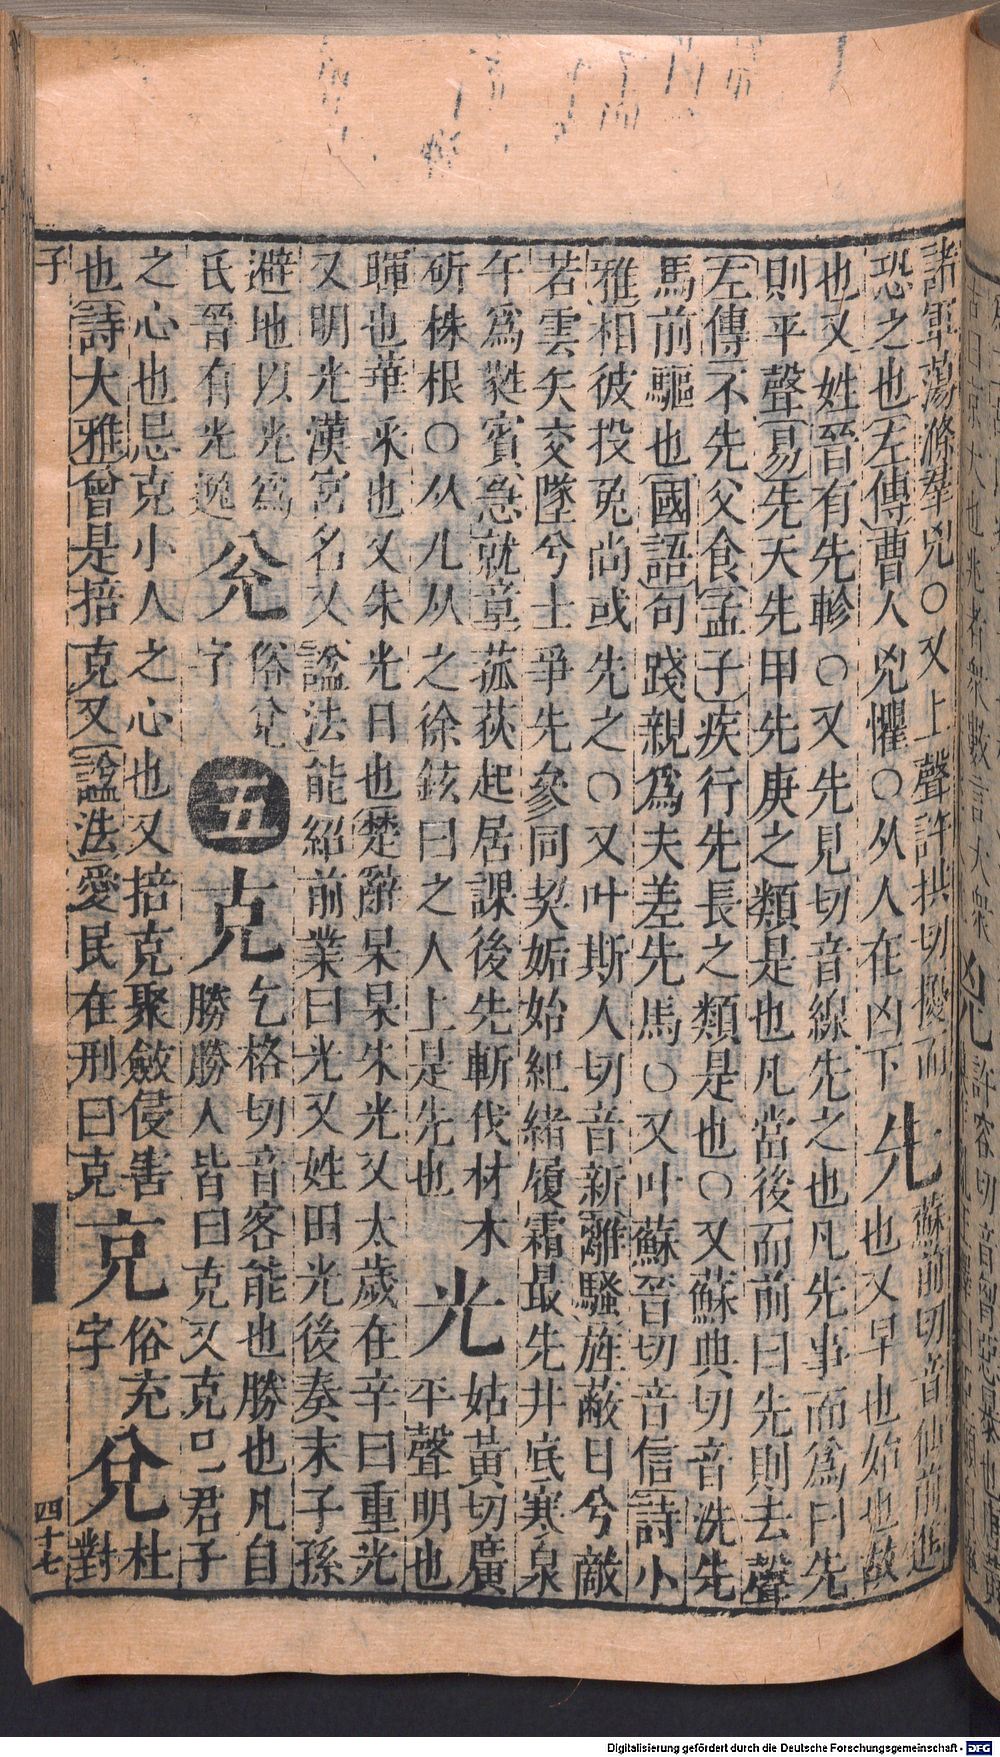 諸軍蕩滌羣兇○又上聲許拱切擾而
恐之也左傳曹人兇懼○从人在凶下 先 蘇前切音仙前進也又早也始也故
也又姓晉有先軫○又先見切音線先之也凡先事而爲曰先
則平聲易先天先甲先庚之類是也凡當後而前曰先則去聲
左傳不先父食孟子疾行先長之類是也○又蘇典切音洗先
馬前驅也國語句踐親爲夫差先馬○又叶蘇晉切音信詩小
雅相彼投兔尚或先之○又叶斯人切音新離騷旌蔽日兮敵
若雲矢交墜兮士爭先參同契姤始紀緒履霜最先井底寒泉
午爲蕤賓急就章菰荻起居課後先斬伐材木
斫株根○从儿从之徐鉉曰之人上是先也 光 姑黃切廣平聲明也
暉也華采也又朱光日也楚辭杲杲朱光又太歲在辛曰重光
又明光漢宮名又諡法能紹前業曰光又姓田光後秦末子孫
避地以光爲氏晉有光逸 兊 俗兌字 五 克 乞格切音客能也勝也凡自
勝勝人皆曰克又克己君子
之心也忌克小人之心也又掊克聚斂侵害
也詩大雅曾是掊克又諡法愛民在刑曰克 𠅏 俗充字 兌 杜對
子
四十七
Digitalisierung gefördert durch die Deutsche Forschungsgemeinschaft - DFG